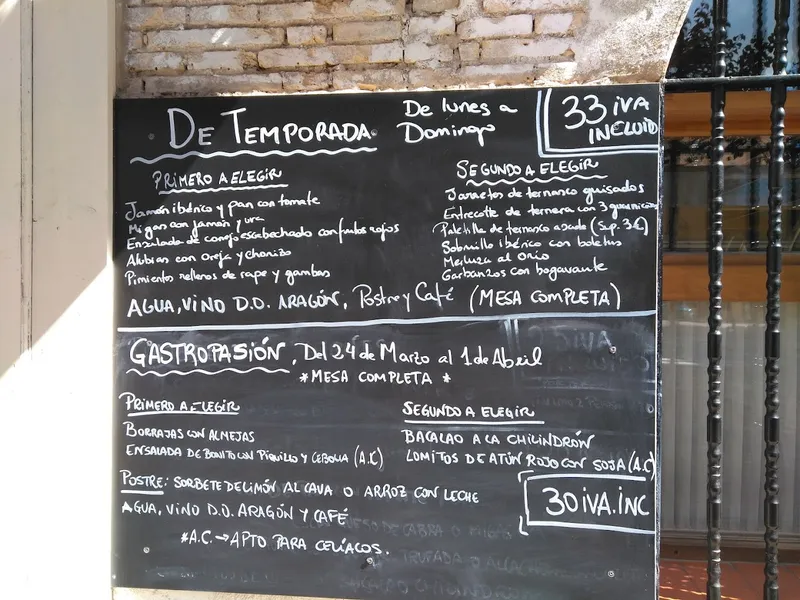 DE TEMPORADA
De lunes a
Domingo
33 IVA
INCLUID
PRIMERO A ELEGIR
Jamón ibérico y pan con tomate
Migas con jamón y uva
Ensalada de conejo escabechado con frutos rojos
Alubias con oreja y chorizo
Pimientos rellenos de rape y gambas
SEGUNDO A ELEGIR
Jarretes de ternasco guisados
Entrecotte de ternera con 3 guarnicio
Paletilla de ternasco asada (Sup. 3€)
Solomillo ibérico con boletus
Merluza al Orio
Garbanzos con bogavante
AGUA, VINO D.O. ARAGÓN, Postre y Café (MESA COMPLETA)
GASTROPASIÓN, Del 24 de Marzo al 1 de Abril
*MESA COMPLETA *
PRIMERO A ELEGIR
BORRAJAS CON ALMEJAS
ENSALADA DE BONITO CON PIQUILLO Y CEBOLLA (A.C)
SEGUNDO A ELEGIR
BACALAO A LA CHILINDRÓN
LOMITOS DE ATÚN ROJO CON SOJA (A.C)
POSTRE: SORBETE DE LIMÓN AL CAVA O ARROZ CON LECHE
AGUA, VINO D.O. ARAGÓN Y CAFÉ
30 IVA.INC
*A.C. → APTO PARA CELÍACOS.